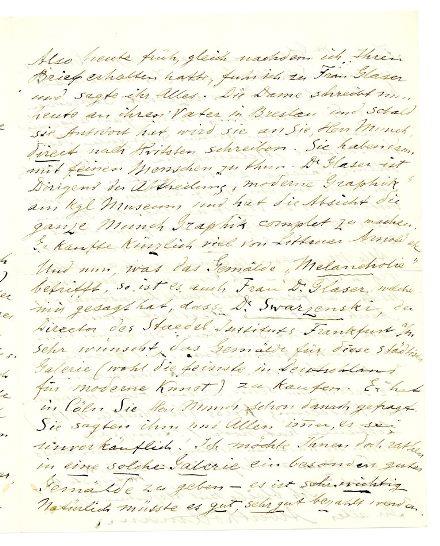 Also heute früh, gleich nachdem ich Ihren
Brief erhalten hatte, fuhr ich zu Frau Glaser
und sagte ihr Alles. Die Dame schreibt nun
heute an ihren Vater in Breslau und sobald
sie Antwort hat, wird sie an Sie, Herr Munch,
direct nach Kvitsten schreiben. Sie haben
mit feinen Menschen zu thun. Dr Glaser ist
Dirigent der Abtheilung „moderne Graphik“
am Kgl Museum und hat die Absicht die
ganze Munch Graphik complet zu machen.
Er kaufte kürzlich viel von
Und nun, was das Gemälde „Melancholie“
betrifft, so ist es auch Frau Dr. Glaser, welche
mir gesagt hat, dass Dr. Swarzenski, der
Director des Staedel Instituts Frankfurt
sehr wünscht das Gemälde für diese städtische
Galerie (wohl die feinste in
für moderne Kunst) zu kaufen. Er hat
in Cöln Sie, Herr Munch schon danach gefragt
Sie sagten ihm und Allen immer, es sei
unverkäuflich. Ich möchte Ihnen doch rathen
in eine solche Galerie ein besonders gutes
Gemälde zu geben – es ist sehr wichtig
Natürlich müsste es gut, sehr gut bezahlt werden.